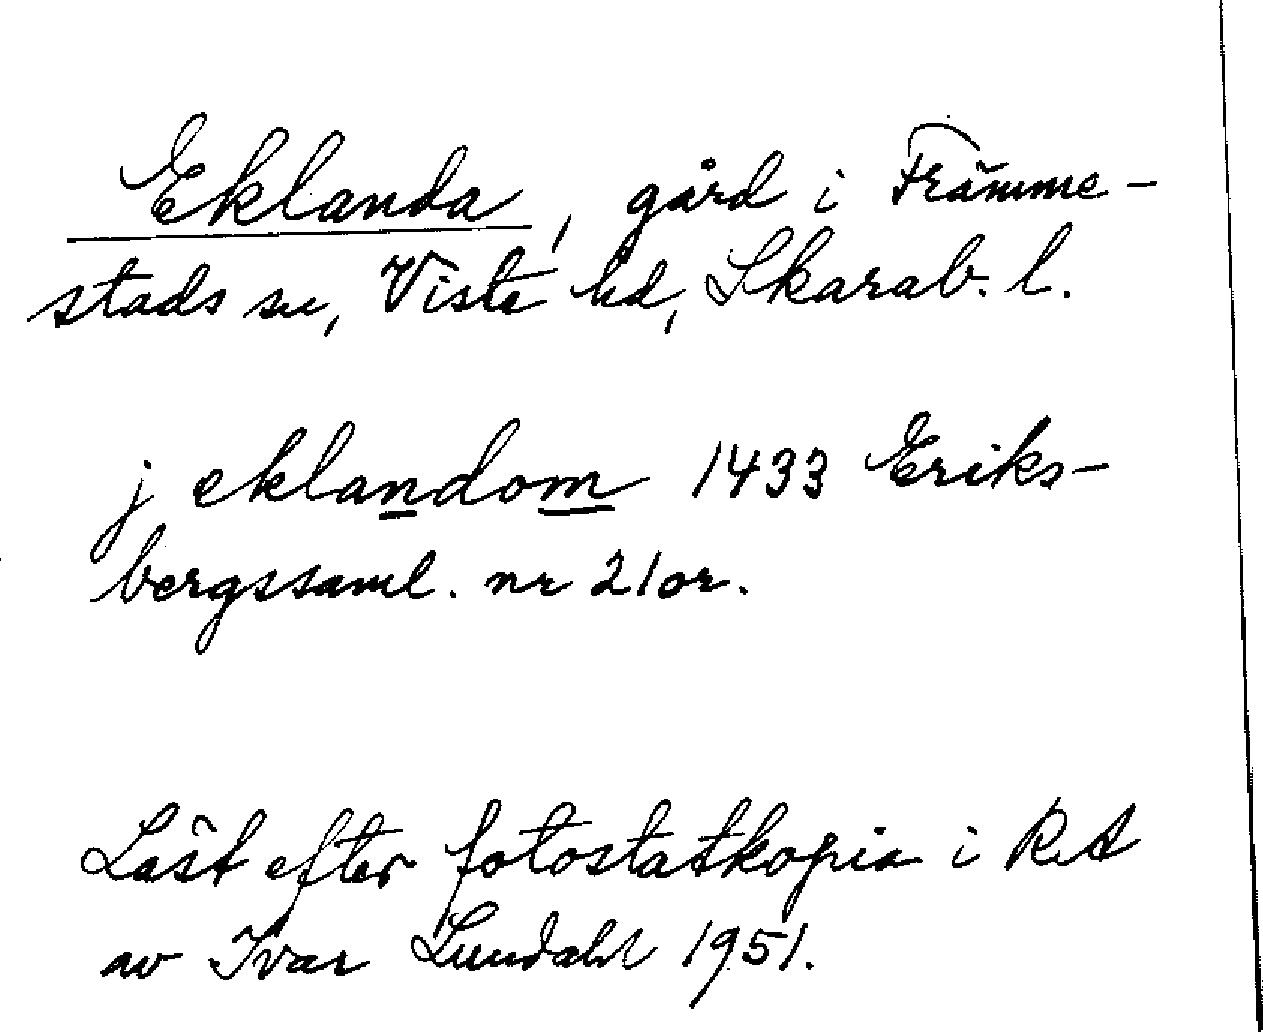 Eklanda, gård i Främme-
stads sn, Viste hd, Skarab. l.
j eklandom 1433 Eriks-
bergssaml. nr 21 or.
Läst efter fotostatkopia i RA
av Ivar Lundahl 1951.